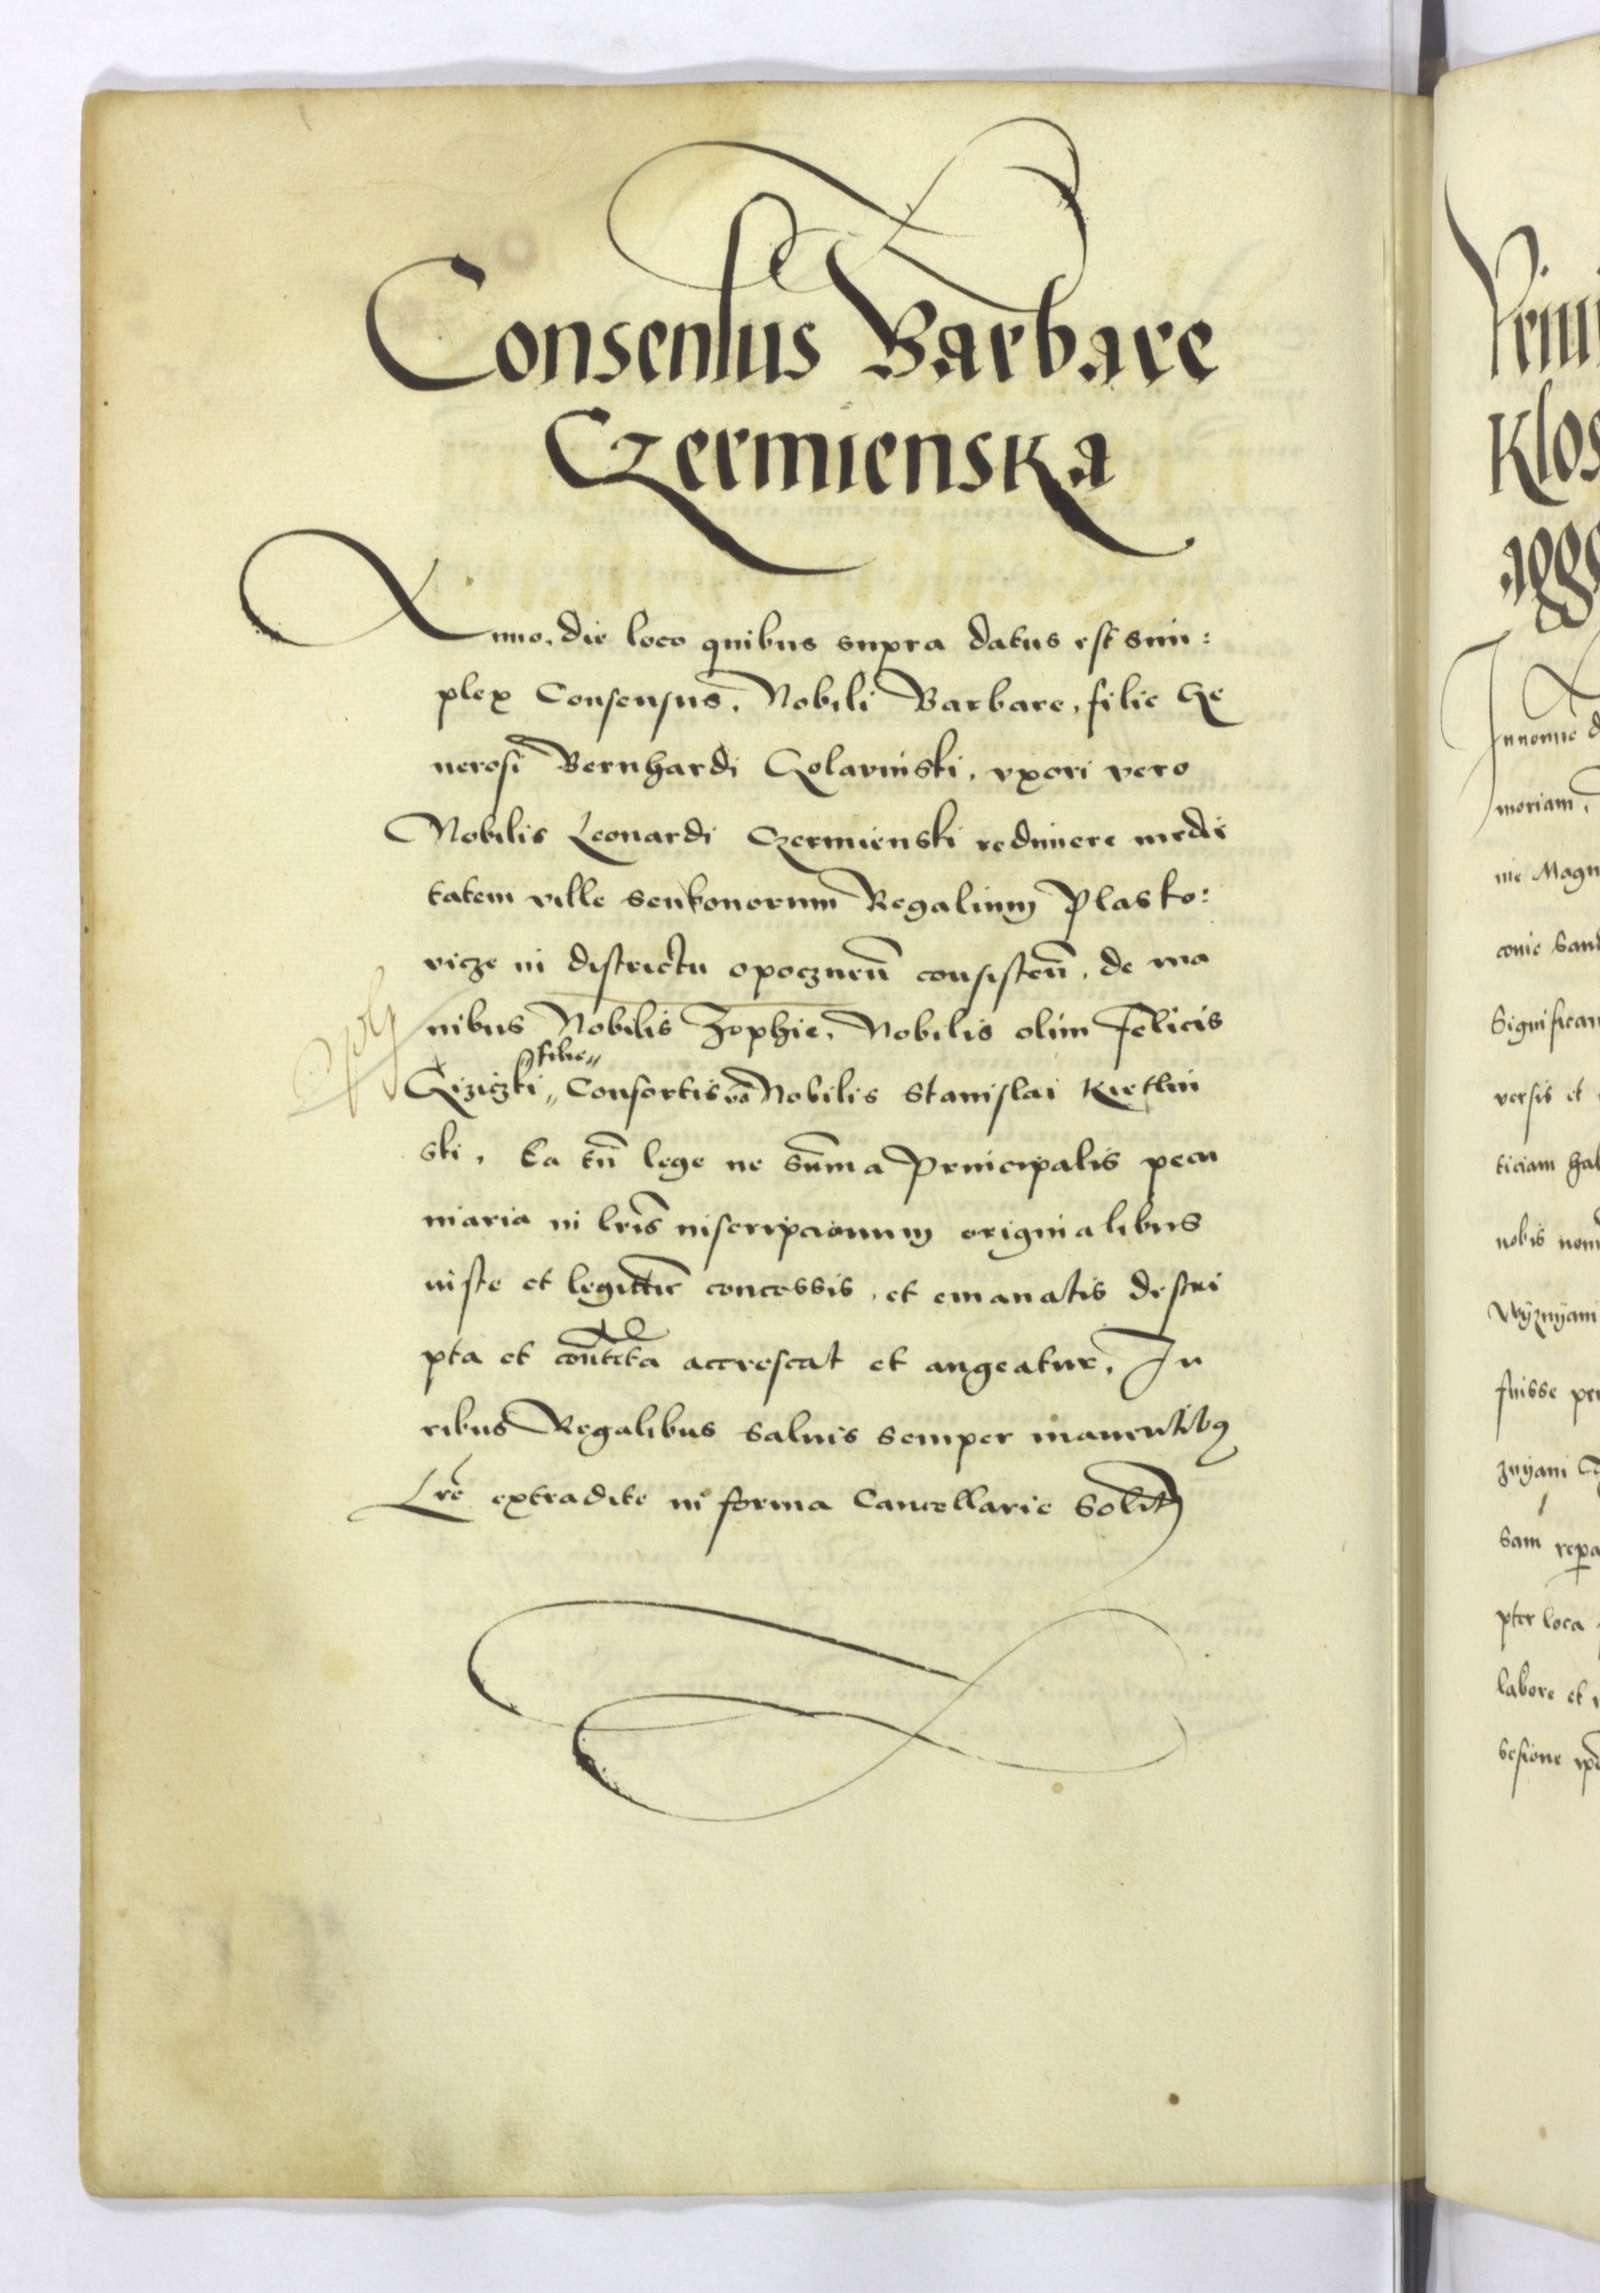 Consensus Barbare
Czermienska
Anno, die loco quibus supra datus est sim:
plex Consensus, Nobili Barbare, filie Ge
nerosi Bernhardi Golavinski, vxori vero
Nobilis Leonardi Czermienski redimere medie
tatem ville benkonorum Regalium Plasko:
vicze in districtu opocznen̄ consisten̄, de ma
nibus Nobilis Zophie, Nobilis olim Felicis
filie
Giziczki Consortis vō Nobilis Stanislai Kietlin
ski, Ea tn̄ lege ne sum̄a Principalis pecu
niaria in lrīs inscripcionum originalibus
iuste et legittīe concessis, et emanatis descri
pta et con̄tēta accrescat et augeatur, Iu
ribus Regalibus saluis semper manentibꝫ
Lrē extradite in forma Cancellarie solitꝭ
Kłos
agge
In nomīe d
moriam,
nie Magn
Significan
versis et
ticiam hab
nobis nom
Wÿznÿani
fuisse per
znÿani
sam̄ repa
pter loca
labore et